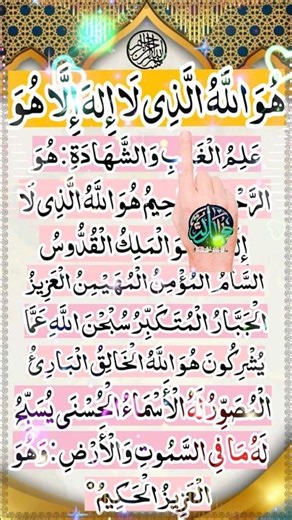 هُوَ اللَّهُ الَّذِى لَا إِلَهَ إِلَّا هُوَ
عَلِمُ الْغَ بِ وَالشَّهَادَةِ: هُوَ
الرَّحْ حِيمُ هُوَ اللَّهُ الَّذِى لَا
إِلَ وَ الْمَلِكُ الْقُدُّوسُ
السَّلَامُ الْمُؤْمِنُ الْمُهَيْمِنُ الْعَزِيزُ
الْجَبَّارُ الْمُتَكَبِّرُ سُبْحَنَ اللَّهِ عَمَّا
يُشْرِكُونَ هُوَ اللَّهُ الْخَالِقُ الْبَارِئُ
الْمُصَوِّرُ لَهُ الْأَسْمَاءُ الْحُسْنَى يُسَبِّحُ
لَهُ مَا فِي السَّمُوتِ وَالْأَرْضِ: وَهُوَ
الْعَزِيزُ الْحَكِيمُ